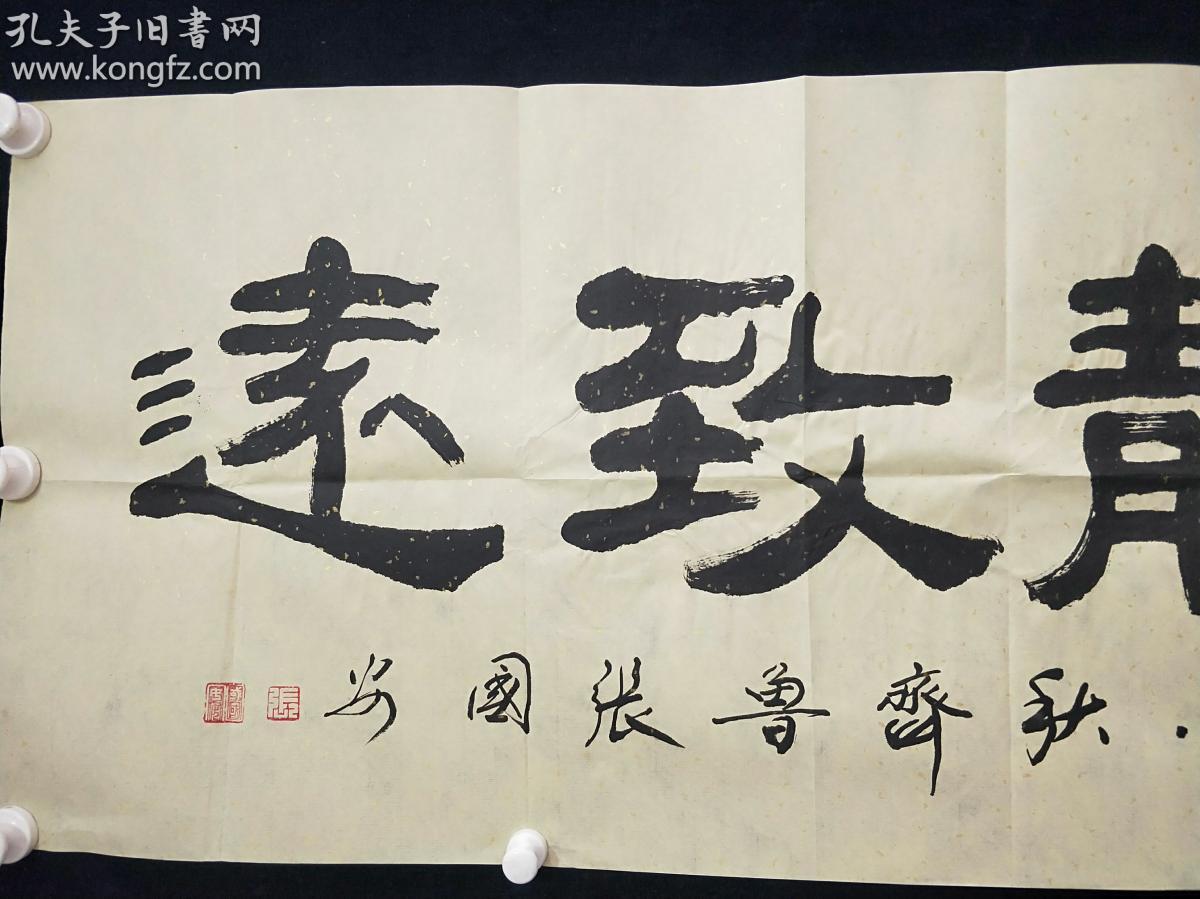 孔夫子旧書网
www.kongfz.com
致遠
秋齊魯張國安
張